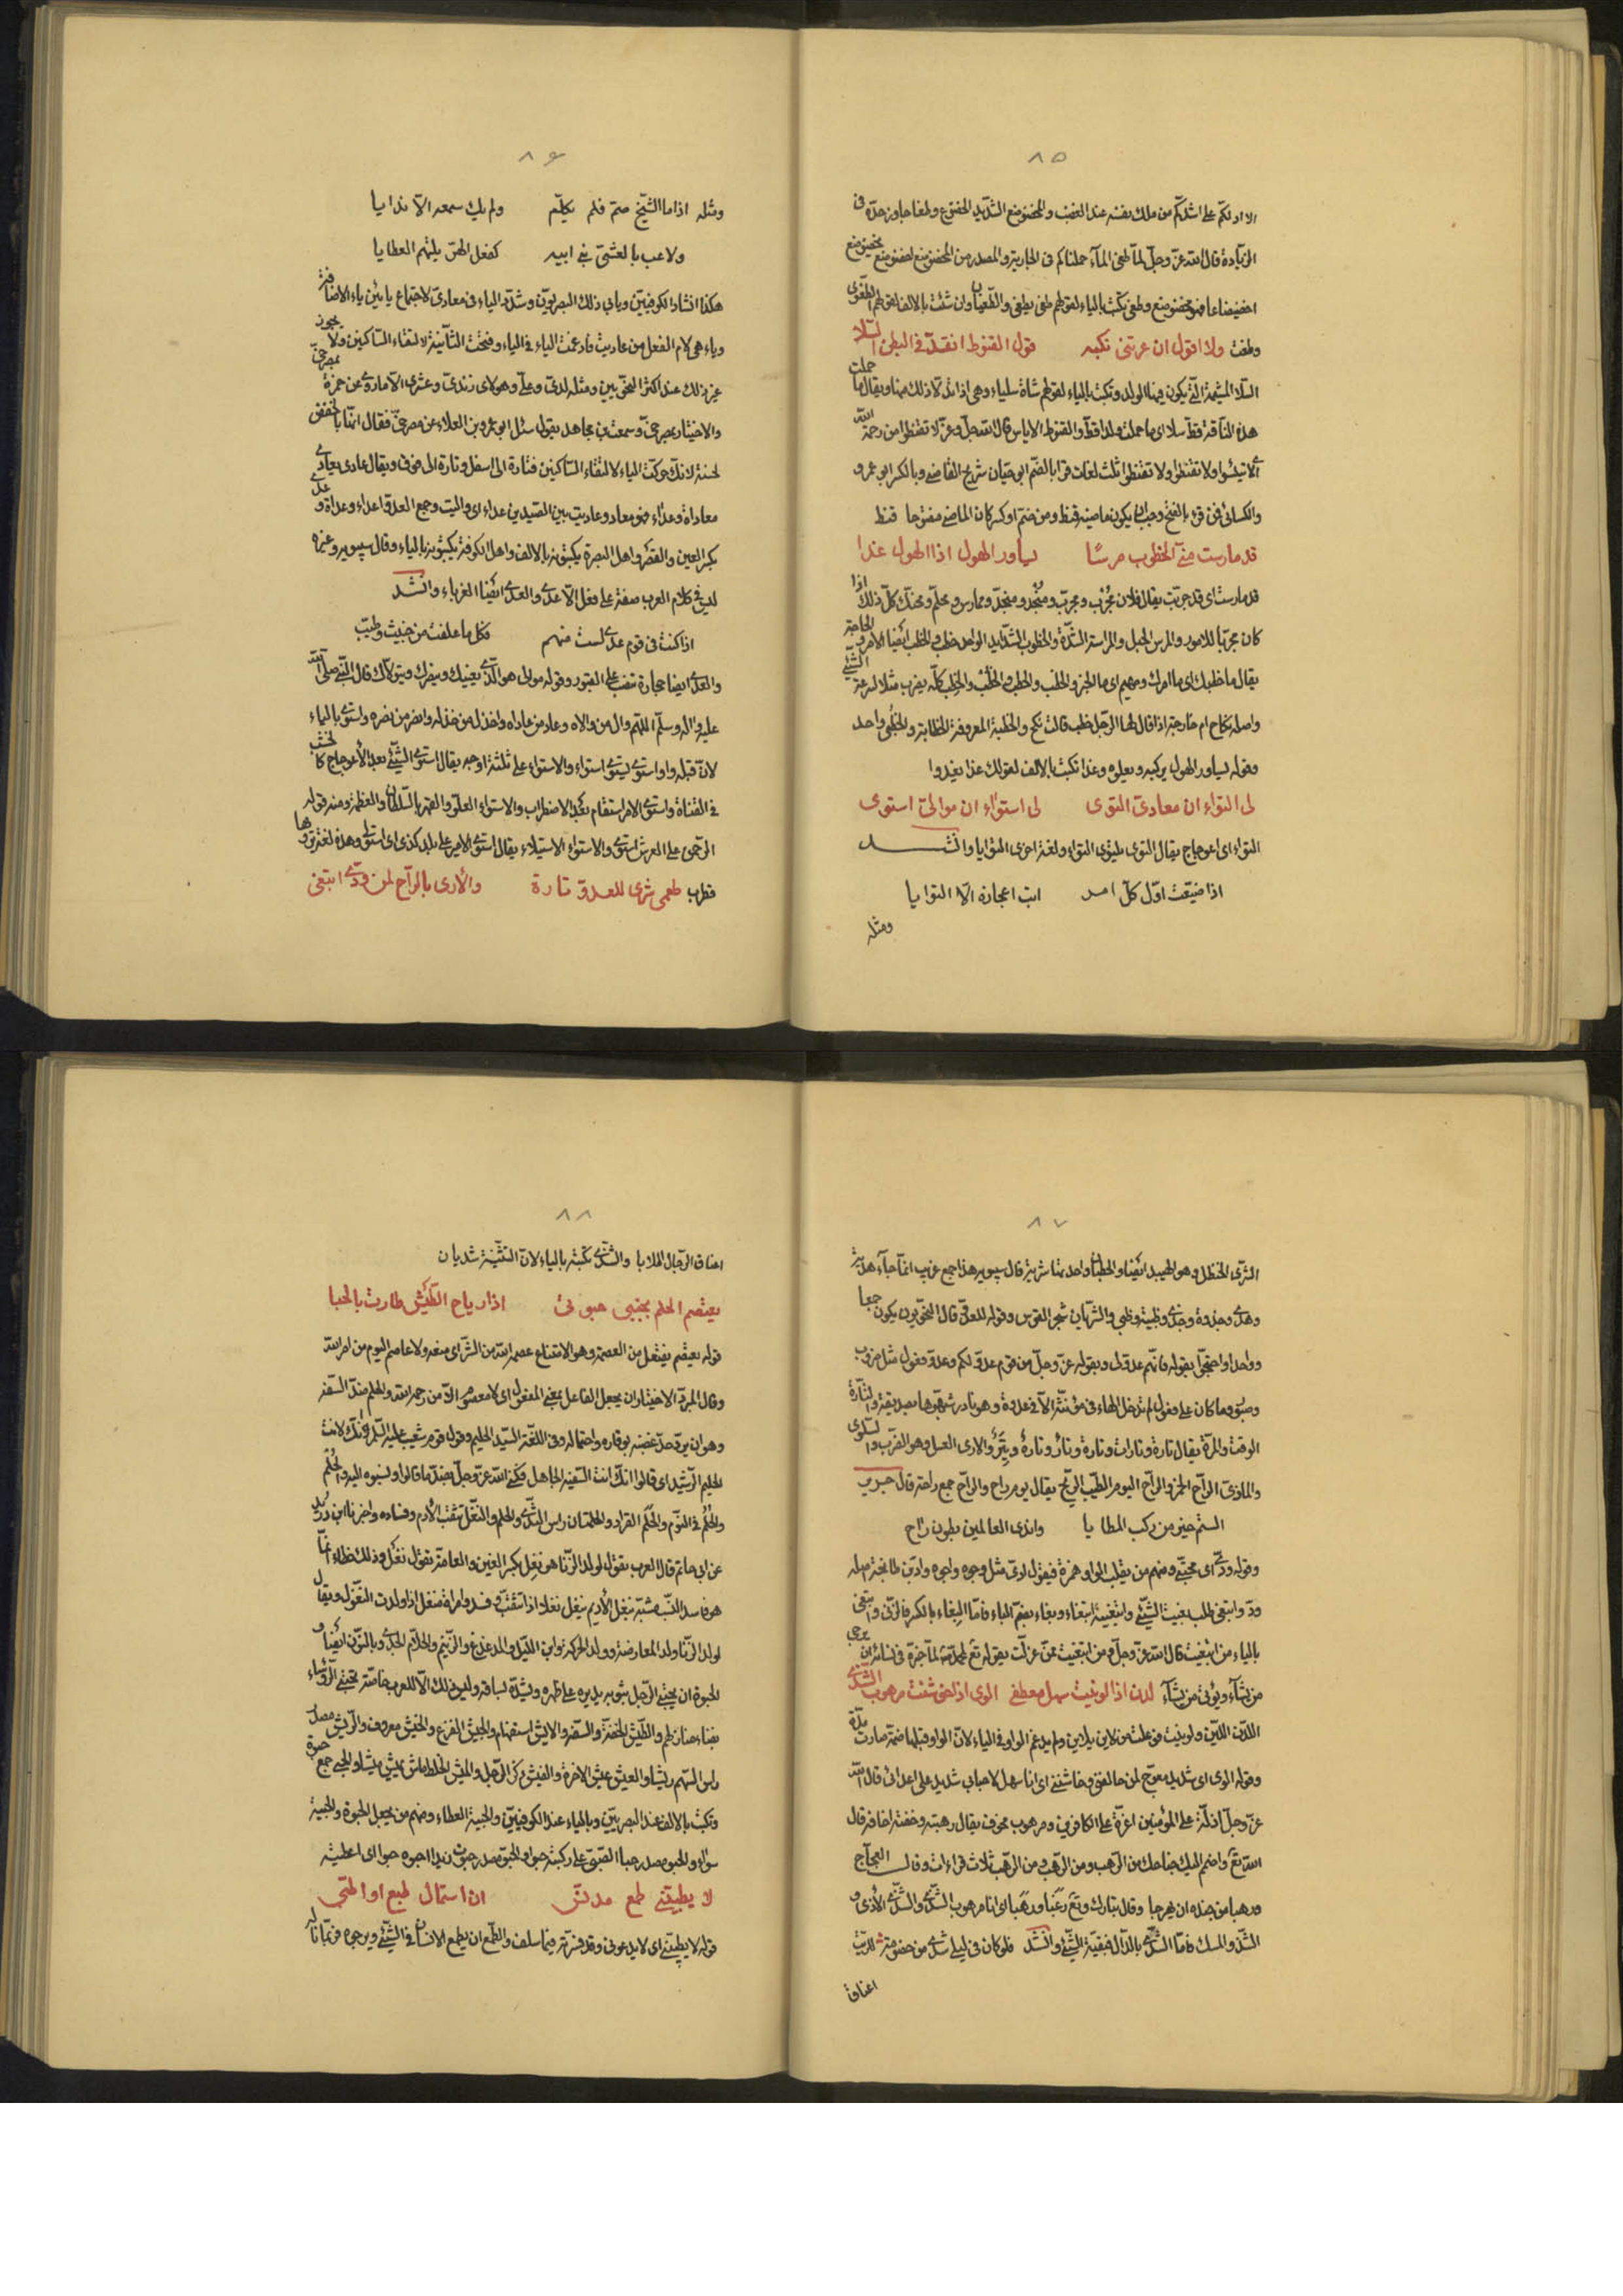 ٨٥
الا ادلكم على اشدكم من ملك نفسه عند الغضب والمخضوضع الشديد الخضوع وطغا جاوز حدّه فى
الزيادة قال الله عزّ وجلّ لمّا طغى المآء حملناكم فى الجارية والمصدر من المخضوضع اخضوضع يخضوضع
اخضيضاعا فهو مخضوضع وطغى تكتب بالياء لقولهم طغى يطغى والطّغيان وان شئت بالالف لقولهم الطغوى
وطغت ولا اقول ان عرتنى نكبه قول القنوط انقدّ فى البطن السّلا
السّلا المشيمة الّتى يكون فيها الولد وتكتب بالياء لقولهم شاة سلياء وهى اذا نال ذلك منها ويقال ما حملت
هذه النّاقة قطّ سلا اى ما حملت ولدا قطّ والقنوط الاياس قال الله جلّ وعزّ لا تقنطوا من رحمة الله
اى لا تيئسوا ولا تقنطوا ولا تقنطوا ثلث لغات قرا بالضّم ابو حيان شريح القاضى وبالكسر ابو عمرو
والكسائى فمن قرئ بالفتح وجب ان يكون ماضيه قنط ومن ضم او كسر كان الماضى مفتوحا قنط
قد مارست منّى الخطوب مرسًا يساور الهول اذا الهول غدا
قد مارست اى قد جرّبت يقال فلان مجُرّب ومجرّب ومنجُّد ومنجّد وممارس ومحلّم ومحنّك كلّ ذلك اذا
كان مجرّبا للامور والمرس الحبل والمراسة الشدّة والخطوب الشّدايد الواحد خطب والخطب ايضا الامر والحاجة
يقال ما خطبك اى ما امرك ومهيم اى ما الخبر والخطب والخطب والخُطب والخِطب كلّه يضرب مثلا لسرعة الشّئ
واصله نكاح ام خارجة اذا قال لها الرّجل خطب قالت نكح والخطبة المعروفة الخطابة والخُطبى واحد
وقوله يساور الهول يركبه ويعلوه وغدا تكتب بالالف لقولك غدا يغدوا
لى التواء ان معادىّ التوى لى استواء ان موالىّ استوى
التواء اى اعوجاج يقال التوى يلتوى التواء ولغة اخرى التوايا وانشد
اذا ضيّعت اوّل كلّ امر ابت اعجازه الّا التوايا
ومثله
٨٦
ومثله اذا ما الشّيخ صمّ فلم يكلّم ولم يك سمعه الّا ندايا
ولاعب بالعشىّ بنى ابيه كفعل الهرّ يلتهم العظايا
هكذا انشاد الكوفيّين ويابى ذلك البصريّون وشدّد الياء فى معادىّ لاجتماع يائين ياء الاضافة
وياء هى لام الفعل من عاديت فادغمت الياء فى الياء وفتحت الثّانية لالتقاء السّاكنين ولا يجوز
غير ذلك عند اكثر النّحويّين ومثله لدىّ وعلىّ وهولاى زندىّ وعشرىّ الّا ما روى عن حمزة بمصرخىّ
والاختيار بمصرخىّ وسمعت بن مجاهد يقول سئل ابو عمرو بن العلاء عن مصرخىّ فقال انّها بالخفض
لحسنة لانّك حرّكت الياء لالتقاء السّاكنين فتارة الى اسفل وتارة الى فوق ويقال عادى يعادى
معاداة وعداء فهو معاد وعاديت بين الصّيدين عداء اى واليت وجمع العدوّ اعداء وعداة وعدى
بكسر العين والقصر واهل البصرة يكتبونه بالالف واهل الكوفة يكتبونه بالياء وقال سيبويه وغيره
ليس فى كلام العرب صفة على فعل الّا عدى والعدى ايضا الغرباء وانشد
اذا كنت فى قوم عدى لست منهم فكل ما علفت من خبيث وطيّب
والعدى ايضا حجارة تنصب على القبور وقوله موالى هو الّذى يعينك وينصرك ويتولّاك قال النّبىّ صلّى الله
عليه واله وسلّم اللّهم وال من والاه وعاد من عاداه واخذل من خذله وانصر من نصره واستوى بالياء
لانّ قبله واوا استوى يستوى استواء والاستواء على ثلثة اوجه يقال استوى الشّئ بعد الاعوجاج كالخشب
فى القناة واستوى الامر استقام بعد الاضطراب والاستواء العلوّ والقهر بالسّلطان والعظمة ومنه قوله
الرّحمن على العرش استوى والاستواء الاستيلاء يقال استوى الامير على بلد كذى اى استولى وهذه لغة يروها
قطرب طعمى شرى للعدوّ تارة والارى بالرّاح لمن ودّى ابتغى
٨٧
الشّرى الحنظل وهو الهبيد ايضا والخطبان واحدتها شرية قال سيبويه هذا جمع غريب انّما جآء هدية
وهدى وجدوة وجدى وظبية وظبى والشّريان شجر القوس وقوله للعدوّ قال النّحويّون يكون جمعا
وواحدا واحتجّوا بقوله فانّهم عدوّ لى وبقوله عزّ وجلّ من قوم عدوّ لكم وعدوّ فعول مثل ضروب
وصبور وما كان على فعول لم تدخل الهاء فى مونّثه الّا فى عدوة وهو نادر شبّهوها بصديقة والتّارة
الوقت والمرّة يقال تارة وتارات وتارة وتأر وتارة وتِيَر والارى العسل وهو الضّرب والسّلوى
والماذىّ الرّاح الخمر والرّاح اليوم الطّيّب الرّيح يقال يوم راح والرّاح جمع راحة قال جرير
الستم خير من ركب المطايا واندى العالمين بطون راح
وقوله ودّى اى محبّتى ومنهم من يقلب الواو همزة فيقول ادّى مثل وجوه واجوه وادّ بن طابخة اصله
ودّ وابتغى طلب بغيت الشّئ وابتغيته ابتغاء وبغاء بضمّ الباء فامّا البغاء بالكسر فالزّنى وابتغى
بالياء من ابتغيت قال الله عزّ وجلّ ومن ابتغيت ممّن عزلت
من تشآء وتؤى من تشآء لدن اذا لوينت سهل معطفى الوى اذا خوشنت مرهوب الشّذى
اللّدن اللّيّن ولوينت فوعلت من لاين يلاين ولم يدغم الواو فى الياء لانّ الواو قبلها ضمّة صارت مدّة
وقوله الوى اى شديد معوجّ لمن خالفنى وخاشننى اى انا سهل لاحبابى شديد على اعدائى قال الله
عزّ وجلّ اذلّة على المؤمنين اعزّة على الكافرين ومرهوب مخوف يقال رهبته وخفته اخافه قال
الله تع واضمم اليك جناحك من الرّهب ومن الرّهب ومن الرّهب ثلاث قراءات وقال العجّاج
ورهبا من حنده ان يهرجا وقال تبارك وتع رغبا ورهبا اى انا مرهوب الشّذى والشّذى الأذى و
الشّذو المسك فامّا الشّدى بالدّال فبقيّة الشّئ وانشد فلو كان فى ليلى شدى من خصومة للويت
اعناق
٨٨
اعناق الرّجال الملاويا والشّدى تكتبه بالياء لانّ التّثنية شديان
يعتصم الحلم بجنبى حبوتى اذا رياح الطّيش طارت بالحبا
قوله يعتصم يفتعل من العصمة وهو الامتناع عصمه الله من الشّر اى منعه ولا عاصم اليوم من امر الله
وقال المبرّد الاختيار ان يجعل الفاعل بمعنى المفعول اى لا معصوم الّا من رحمه الله والحلم ضدّ السّفه
وهو ان يردّ حدّ غضبه بوقاره واحتماله وفى اللغّة السّيّد الحليم وقول قوم شعيب عليه السّلم انّك لانت
الحليم الرّشيد اى قالوا انّك انت السّفيه الجاهل فكنى الله عزّ وجلّ بضدّ ما قالوا ونسبوه اليه والحُلُم
والحُلم فى النّوم والحَلَم القراد والحلمتان راس الثّدى والحلم والنّغل تنقّب الأدم وفساده واخبرنا ابن دريد
عن ابى حاتم قال العرب يقول لولد الزّنا هو نغِل بكسر الغين والعامّة يقول نغْل وذلك خطاء انّما
هو فاسد النّسب مشبّه بنغل الأديم ينغل نغلا اذا تنقّب وفسد وامراة منغل اذا ولدت النّغول ويقال
لولد الزّنا ولد المعارضة وولد الحركة وابن اللّيل والمدغدغ والزّنيم والحلّام الجدى وبالنّون ايضا و
الحبوة ان يحتبى الرّجل بثوبه بيديه على ظهره ويشدّه لساقه وليس ذلك الّا للعرب خاصّة يحتبى الرّؤساء
بفناء منازلهم والطّيش الخفّة والسّفه والايش استفهام والجيش الفزع والخيش معروف والرّيش مصدر
راس السّهم ريشا والعيش عيش الاخرة والميش الخلط ماش يميش ميشا والحبى جمع حبوة
وتكتب بالالف عند البصريّين وبالياء عند الكوفيّين والحبية العطاء ومنهم من يجعل الحبوة والحبية
سواء والحبو مصدر حبا الصّبىّ على ركبته حبوا والحبو مصدر حبوت زيدا احبوه حبوا اى اعطيته
لا يطبينى طمع مدنّس ان استمال طمع او اطّبى
قوله لا يطبينى اى لا يدعونى وقد فسّرته فيما سلف والطّمع ان يطمع الانسان فى الشّئ ويرجوه فربّما ناله